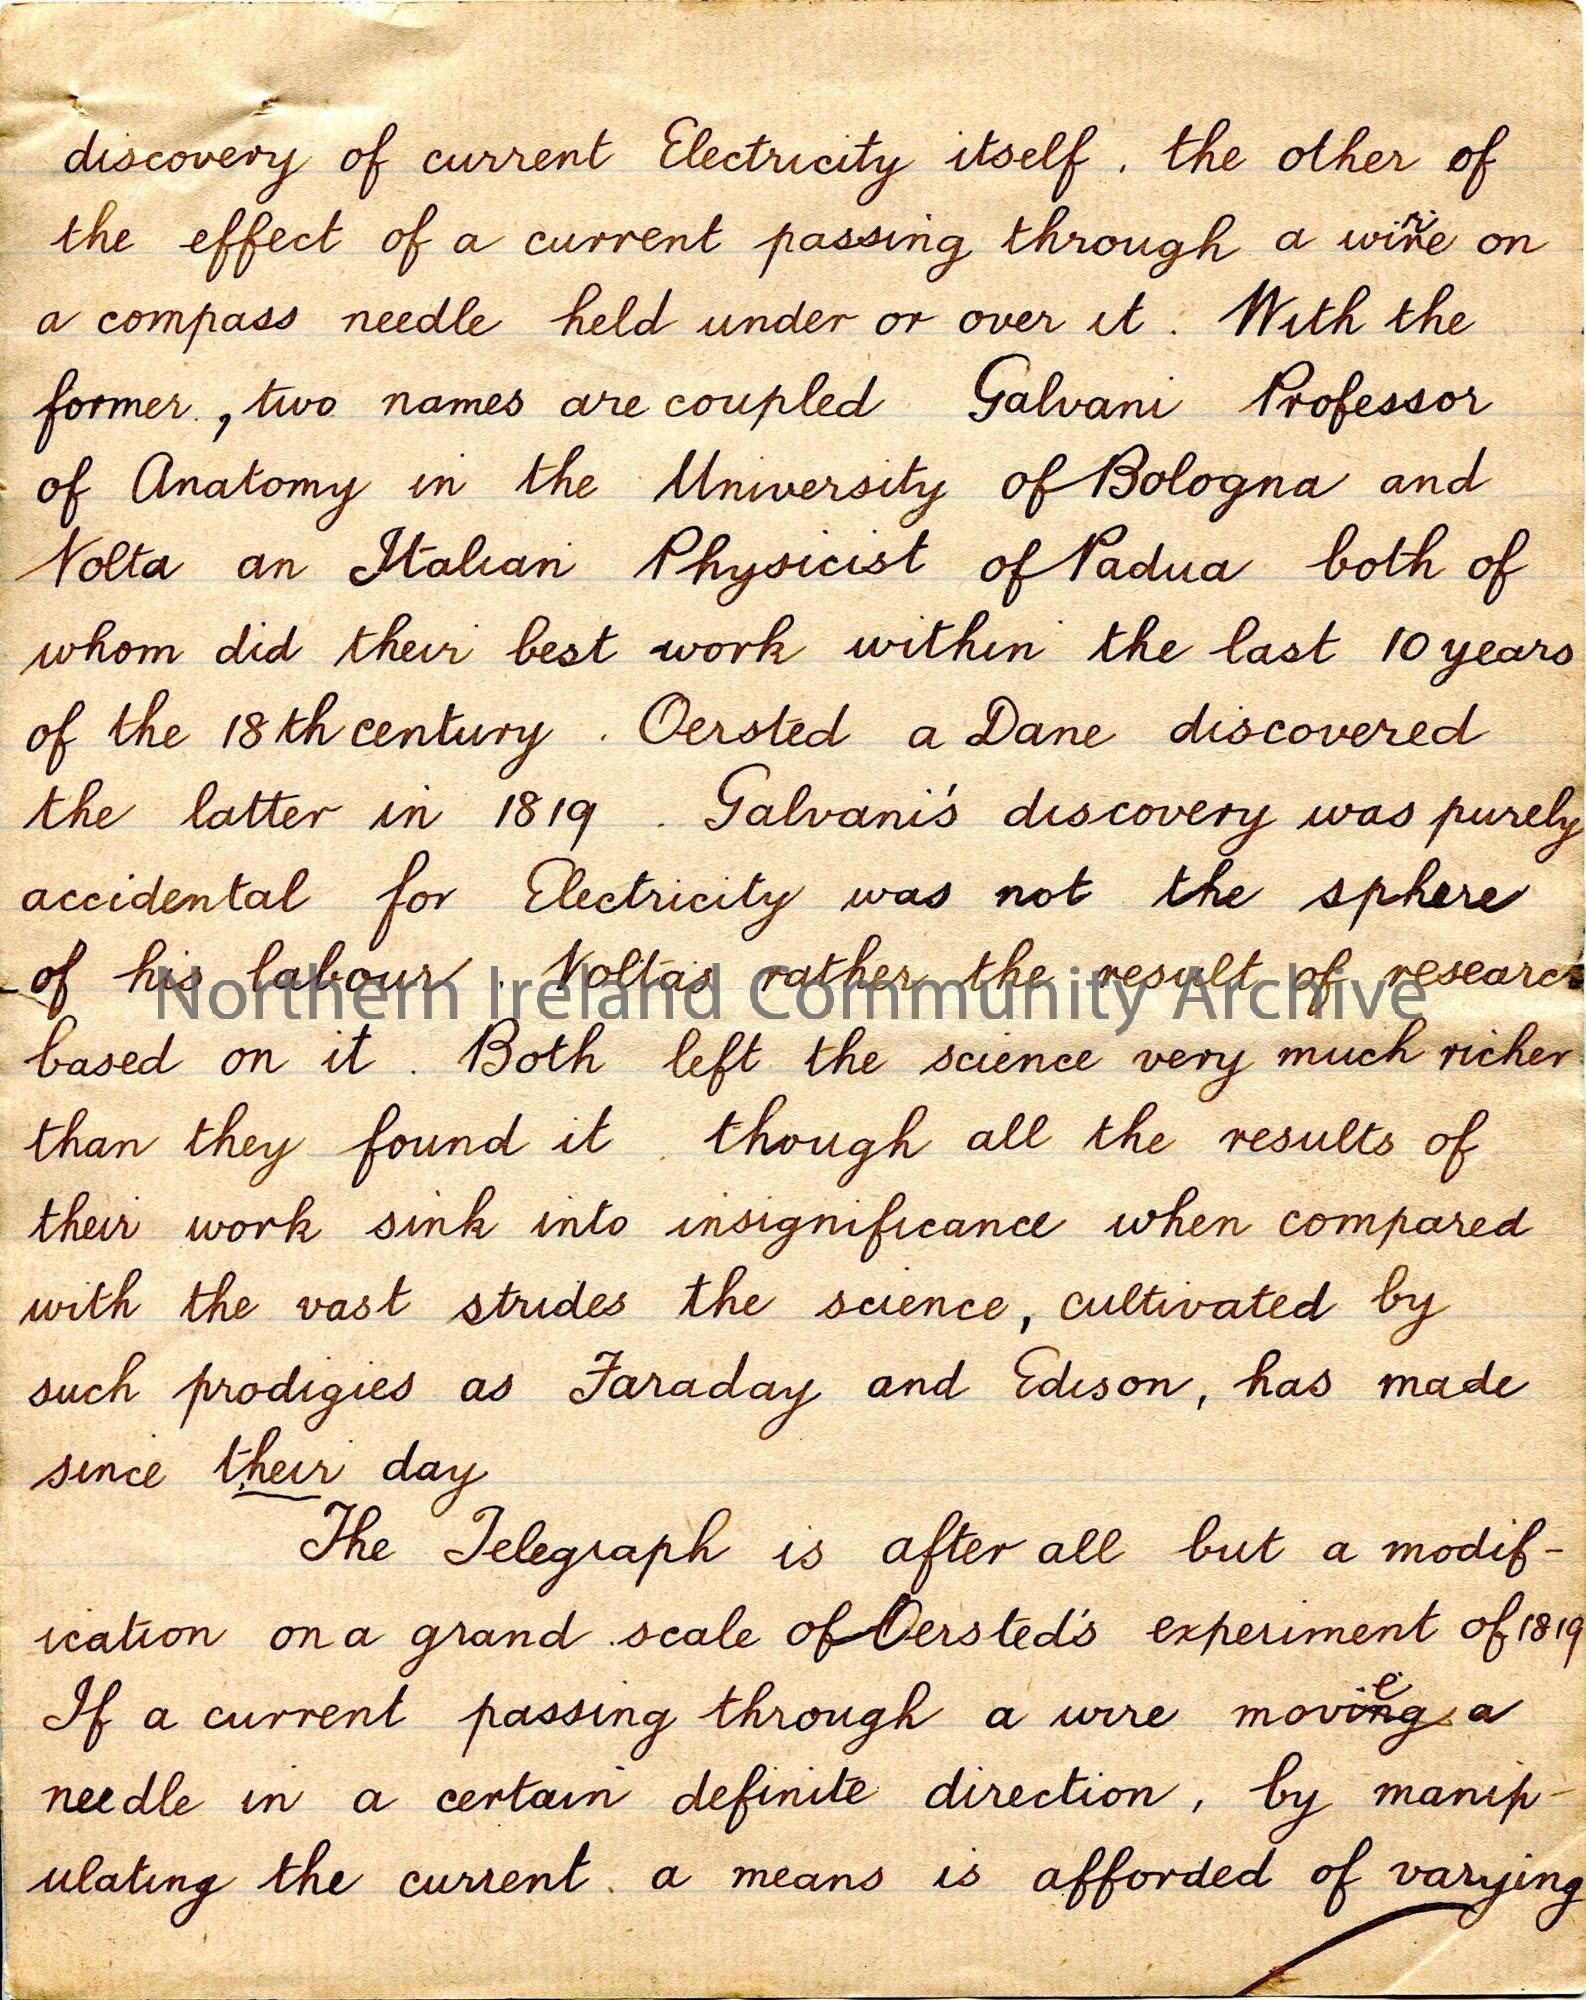 discovery of current Electricity itself. the other of
the effect of a current passing through a wire on
a compass needle held under or over it. With the
former, two names are coupled Galvani Professor
of Anatomy in the University of Bologna and
Volta an Italian Physicist of Padua both of
whom did their best work within the last 10 years
of the 18th century. Oersted a Dane discovered
the latter in 1819. Galvani's discovery was purely
accidental for Electricity was not the sphere
of his labour. Volta's rather the result of researc
Northern Ireland Community Archive
based on it. Both left the science very much richer
than they found it. though all the results of
their work sink into insignificance when compared
with the vast strides the science, cultivated by
such prodigies as Faraday and Edison, has made
since their day
The Telegraph is after all but a modif-
ication on a grand scale of Oersted's experiment of 1819
If a current passing through a wire move a
needle in a certain definite direction, by manip-
ulating the current. a means is afforded of varying